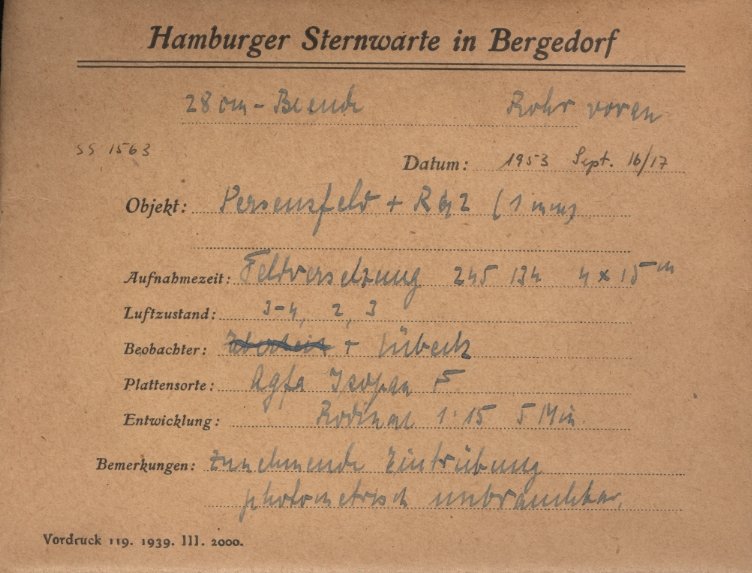 Hamburger Sternwarte in Bergedorf
28 cm - Blende Rohr voran
SS 1563
Datum: 1953 Sept. 16/17
Objekt: Perseusfeld + (1 mm)
Aufnahmezeit: Feldversetzung 245 134 4 x 15 m
Luftzustand: 3-4, 2, 3
Beobachter: + Lübeck
Plattensorte: Agfa Isopan F
Entwicklung: Rodinal 1:15 5 Min
Bemerkungen: zunehmende Eintrübung
photometrisch unbrauchbar.
Vordruck 119. 1939. III. 2000.